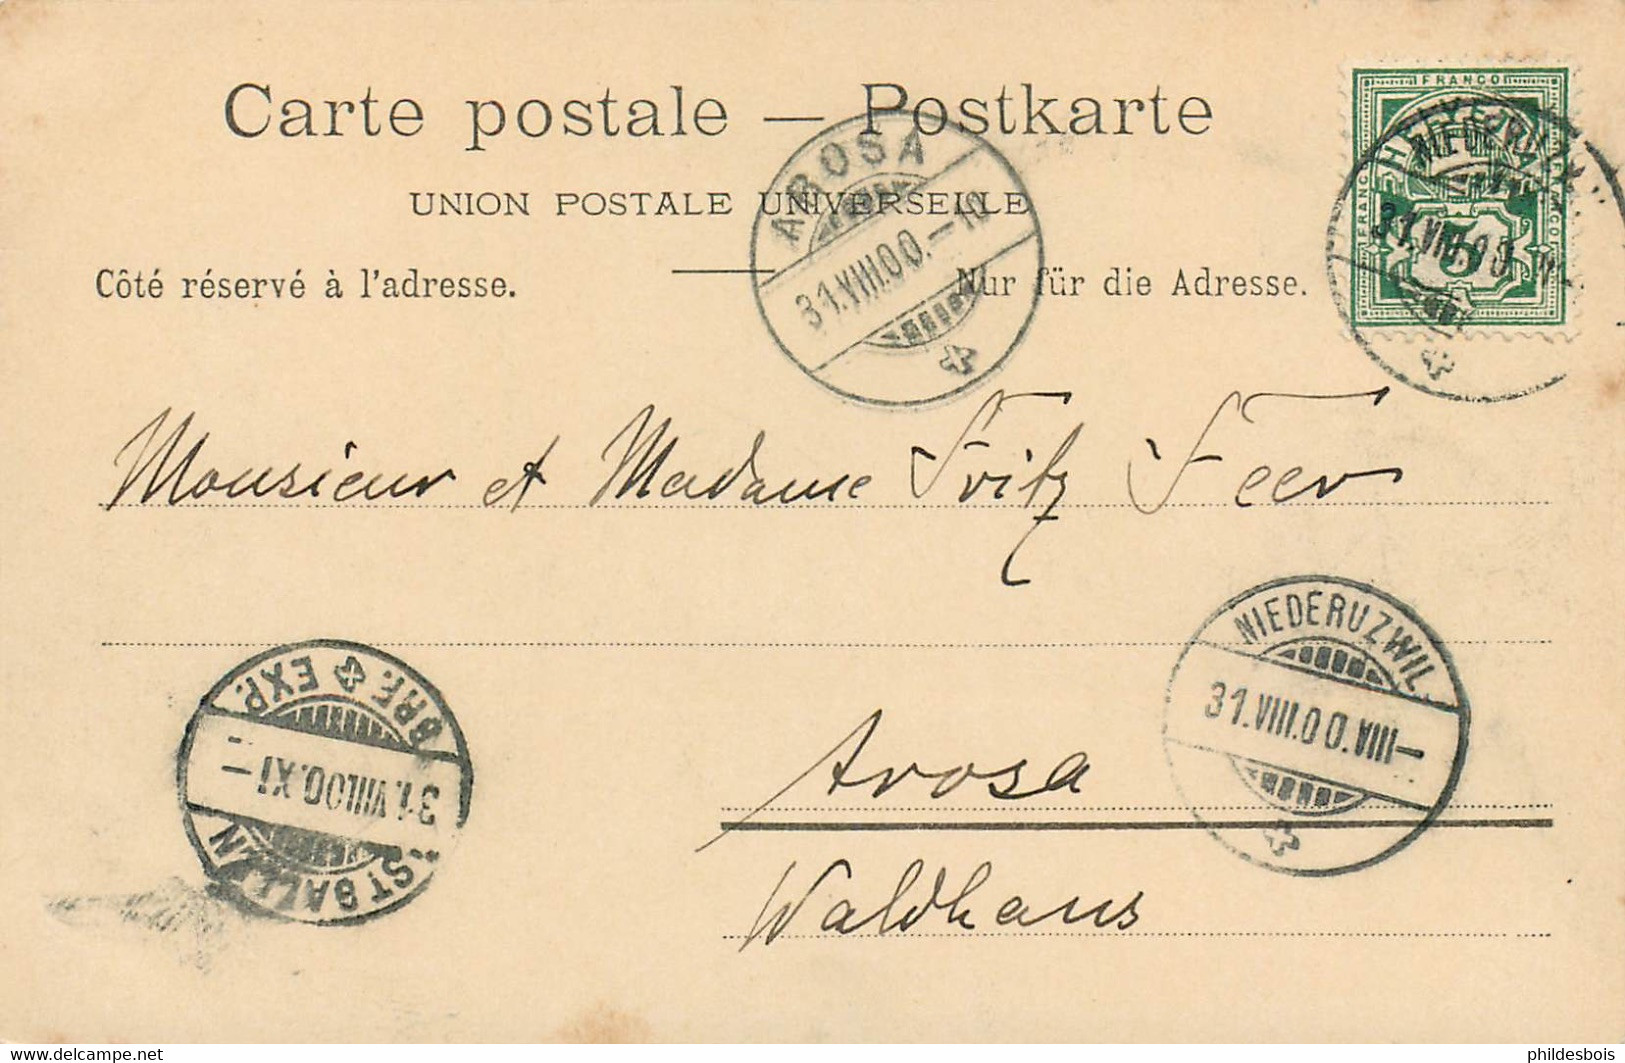 Carte postale — Postkarte
UNION POSTALE UNIVERSELLE
Côté réservé à l'adresse.
Nur für die Adresse.
FRANCO
5
AROSA
31.VIII.00.–10
Monsieur et Madame Fritz Feer
NIEDERUZWIL
31.VIII.00.VIII–
BRF. EXP.
31.VIII.00.XI–
ST GALLEN
Arosa
Waldhaus
www.delcampe.net
phildesbois